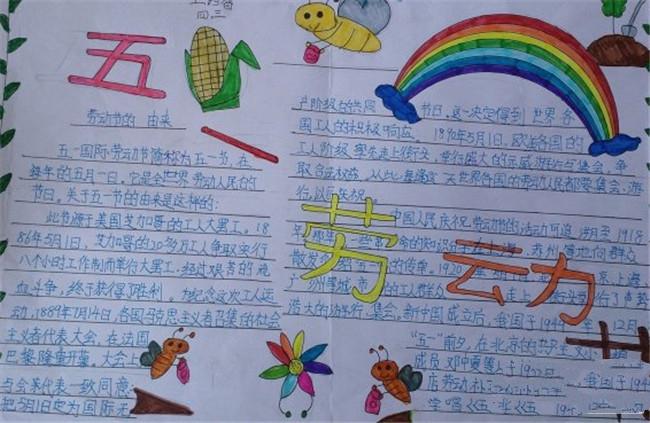 四三
五
劳动节的 由来
五一国际劳动节简称为五一节,在
每年的五月一日。它是全世界劳动人民的
节日。关于五一节的由来是这样的:
此节源于美国芝加哥的工人大罢工。18
86年5月1日,芝加哥的20多万工人争取实行
八个小时工作制而举行大罢工,经过艰苦的流
血斗争,终于获得了胜利。为纪念这次工人运
动,1889年7月14日,各国马克思主义者召集的社会
主义者代表大会,在法国
巴黎隆重开幕。大会上
与会代表一致同意:
把5月1日定为国际无
产阶级的共同 节日。这一决定得到世界各
国工人的积极响应。1890年5月1日,欧美各国的
工人阶级率先走上街头,举行盛大的示威游行与集会,争
取合法权益。从此,每逢这一天世界各国的劳动人民都要集会、游
行,以示庆祝。
中国人民庆祝劳动节的活动可追溯至1918
年 一些 命的知识 在上海、苏州等地向群众
散发 的传单。1920 京、上海
广州 城 的工人群众 走上街头 行了声势
浩大的游行、集会。新中国成立后,我国于1949年12月
劳动
“五一”前夕,在北京的共产主义小
成员邓中夏等人于
我国于194
学唱《五一